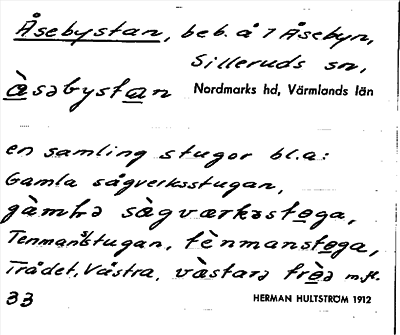 Åsebystan, beb. å 7 Åsebyn,
Silleruds sn,
àsəbystan Nordmarks hd, Värmlands län
en samling stugor bl.a:
Gamla sågverksstugan,
gàmłə sàgværkəstoga,
Tenmansstugan, tènmanstoga,
Trådet, Västra, vàstarə frèə m.fl.
33 HERMAN HULTSTRÖM 1912